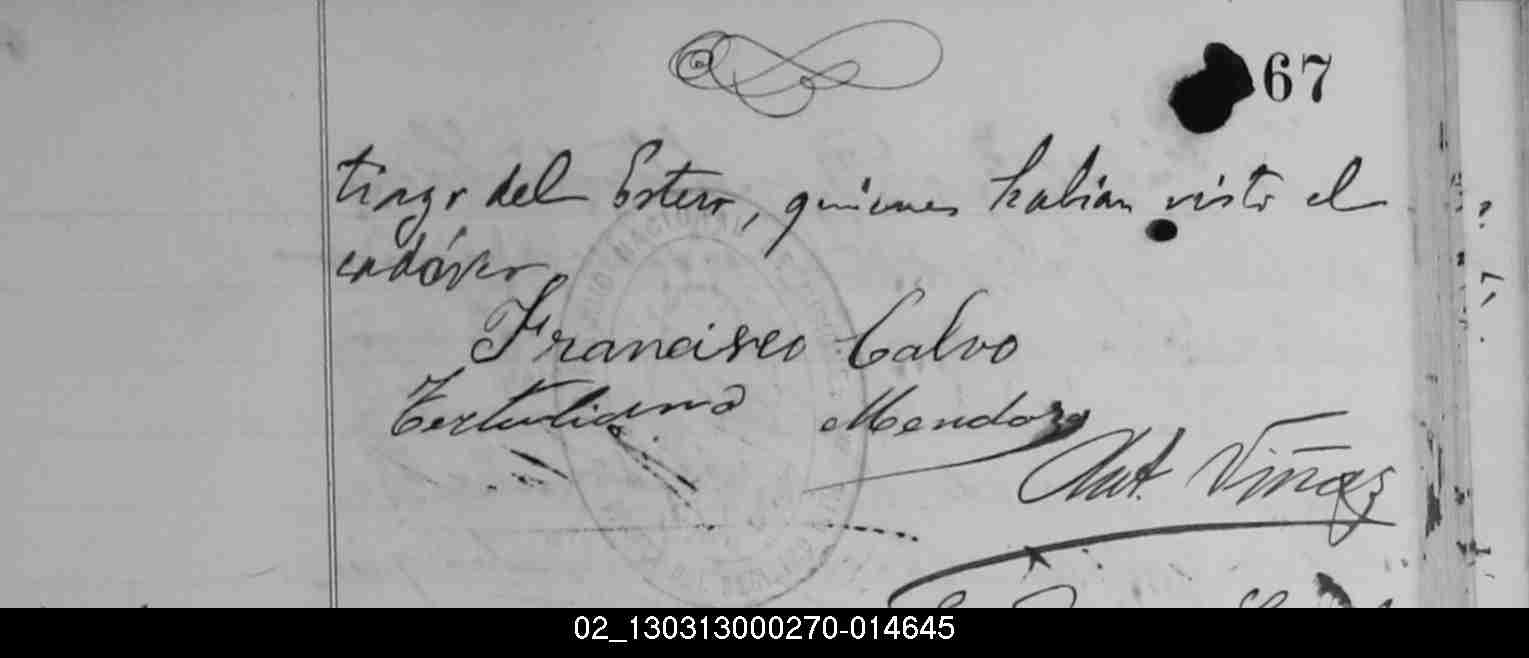 67
tiago del Estero, quienes habian visto el
cadáver
Francisco Calvo
Tertuliano Mendoza
Ant. Viñas
NACIONAL
02_130313000270-014645